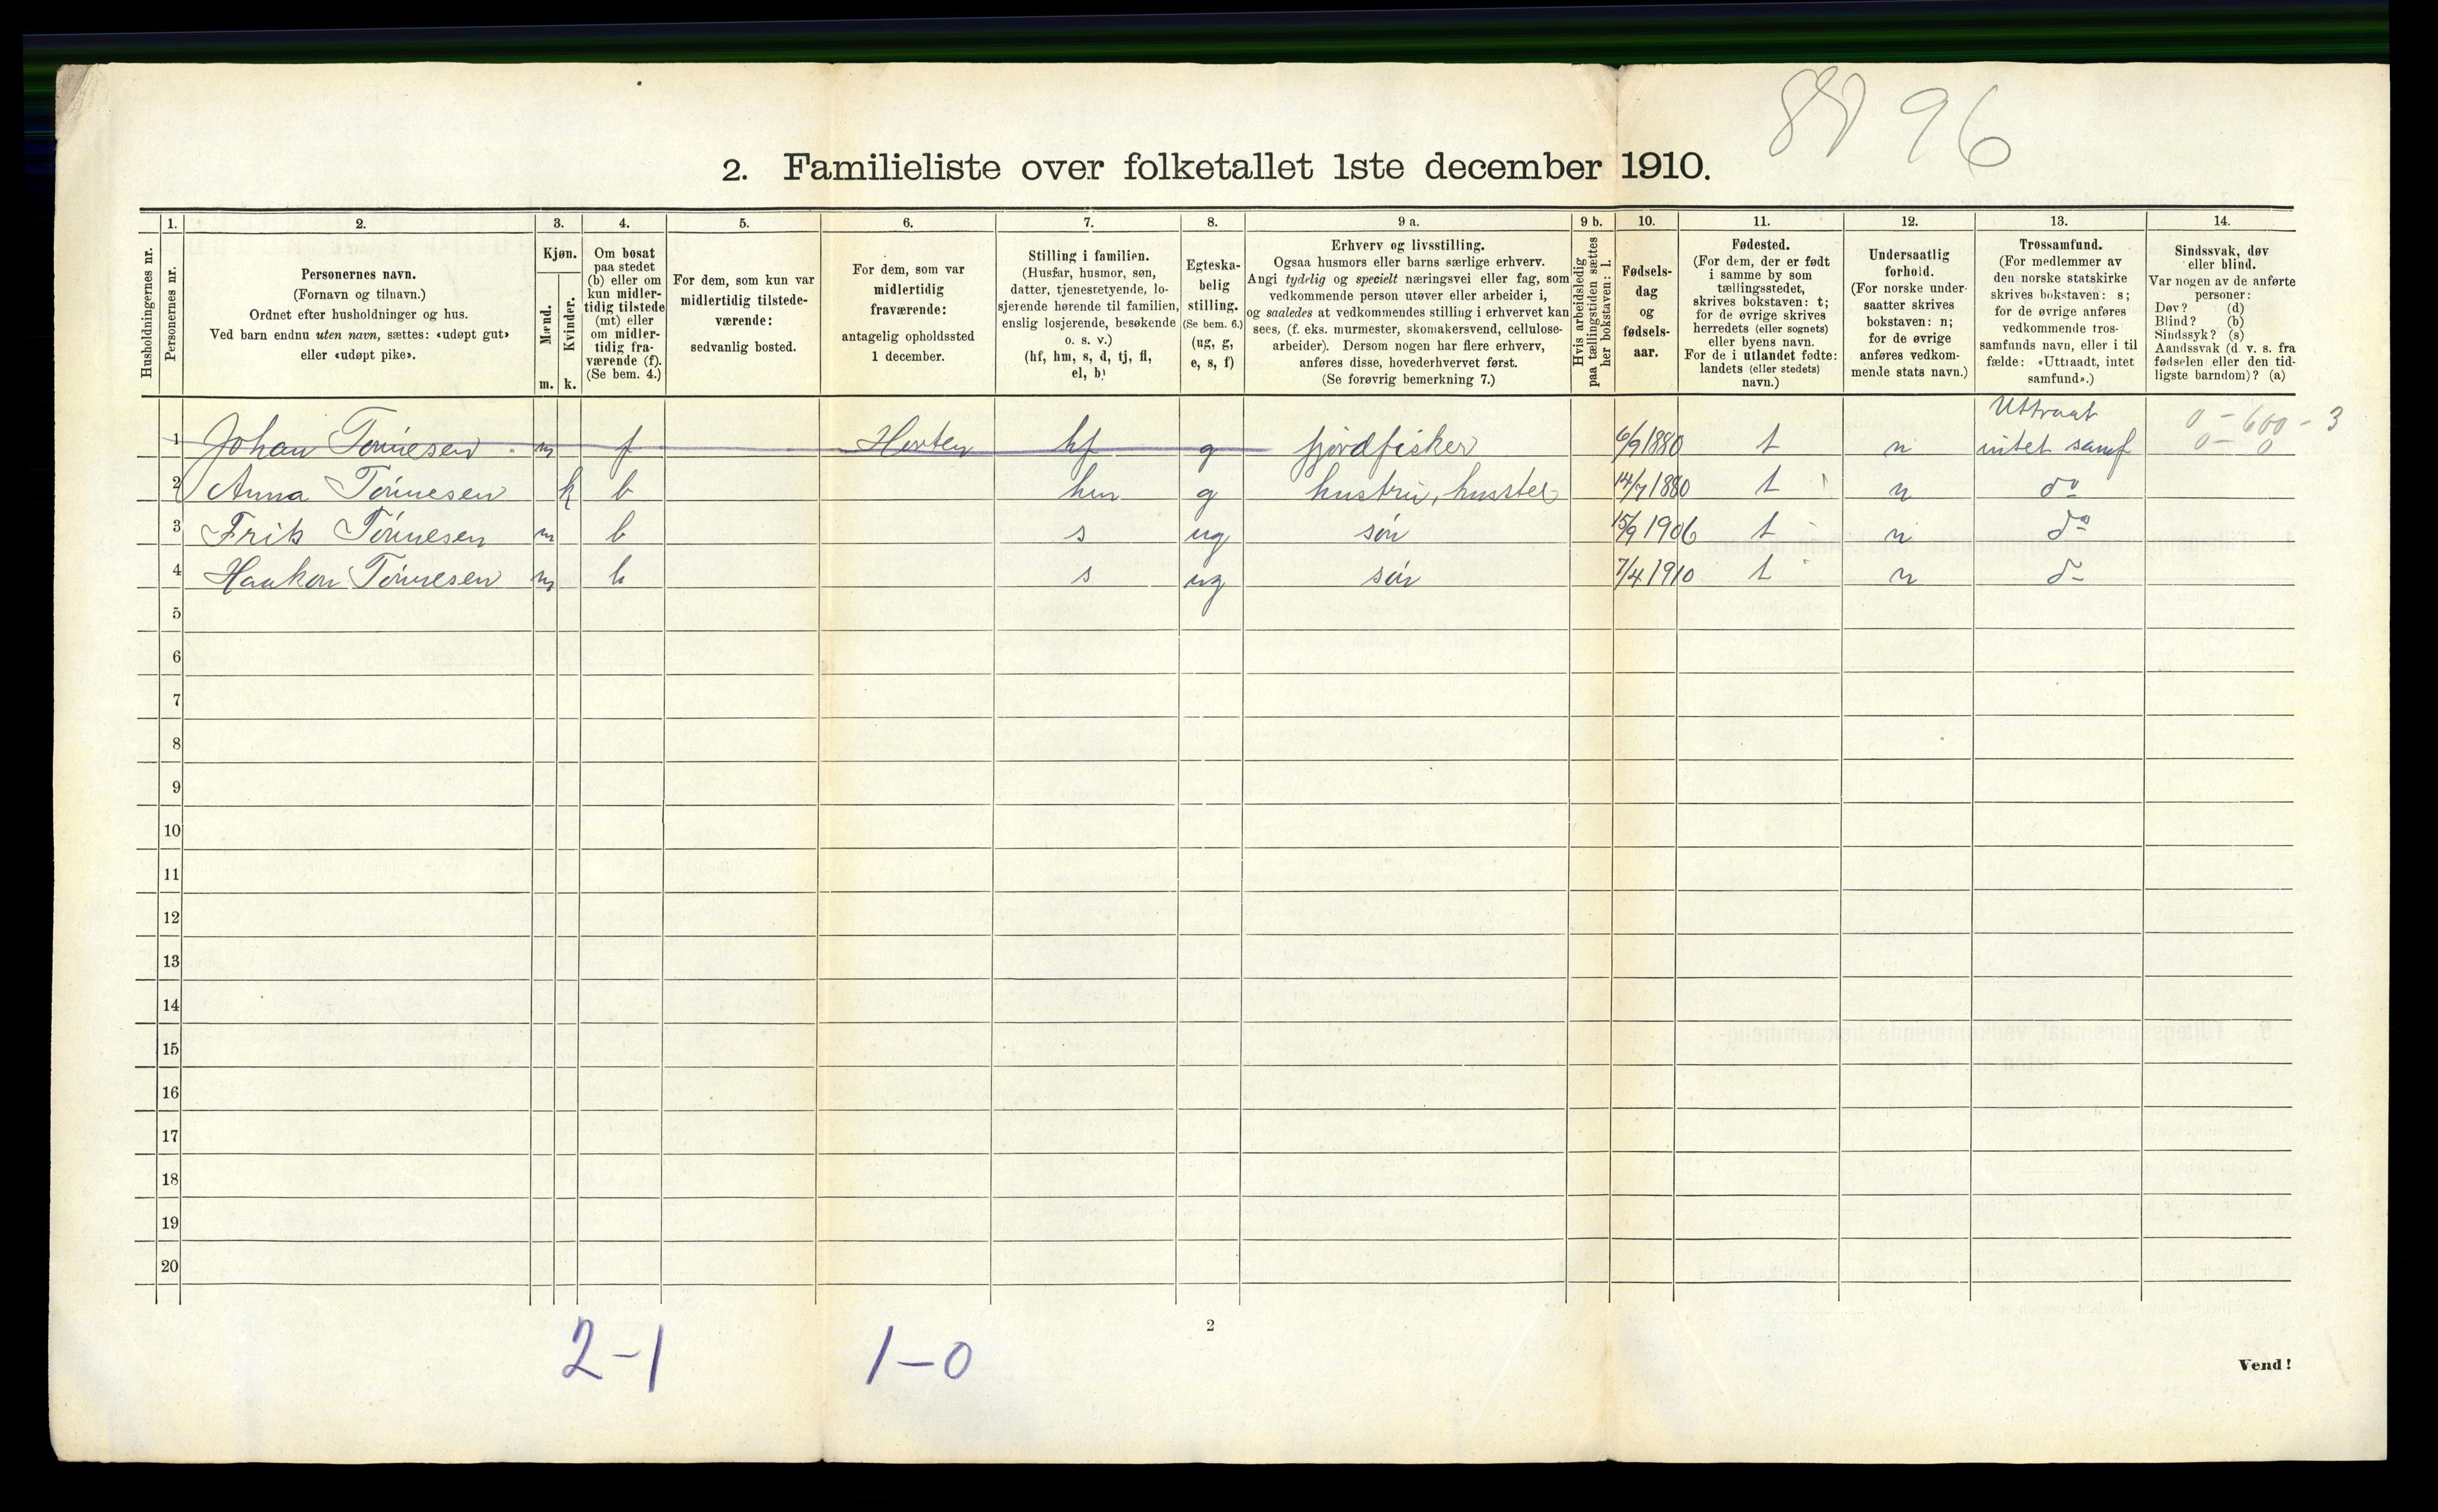 96
2. Familieliste over folketallet 1ste december 1910.
1. 2. 3. 4. 5. 6. 7. 8. 9 a. 9 b. 10. 11. 12. 13. 14.
Husholdningernes nr.
Personernes nr.
Personernes navn.
(Fornavn og tilnavn.)
Ordnet efter husholdninger og hus.
Ved barn endnu uten navn, sættes: «udøpt gut»
eller «udøpt pike».
Kjøn.
Mænd.
Kvinder.
m. k.
Om bosat
paa stedet
(b) eller om
kun midler-
tidig tilstede
(mt) eller
om midler-
tidig fra-
værende (f).
(Se bem. 4.)
For dem, som kun var
midlertidig tilstede-
værende:
sedvanlig bosted.
For dem, som var
midlertidig
fraværende:
antagelig opholdssted
1 december.
Stilling i familien.
(Husfar, husmor, søn,
datter, tjenestetyende, lo-
sjerende hørende til familien,
enslig losjerende, besøkende
o. s. v.)
(hf, hm, s, d, tj, fl,
el, b)
Egteska-
belig
stilling.
(Se bem. 6.)
(ug, g,
e, s, f)
Erhverv og livsstilling.
Ogsaa husmors eller barns særlige erhverv.
Angi tydelig og specielt næringsvei eller fag, som
vedkommende person utøver eller arbeider i,
og saaledes at vedkommendes stilling i erhvervet kan
sees, (f. eks. murmester, skomakersvend, cellulose-
arbeider). Dersom nogen har flere erhverv,
anføres disse, hovederhvervet først.
(Se forøvrig bemerkning 7.)
Hvis arbeidsledig
paa tællingstiden sættes
her bokstaven: l.
Fødsels-
dag
og
fødsels-
aar.
Fødested.
(For dem, der er født
i samme by som
tællingsstedet,
skrives bokstaven: t;
for de øvrige skrives
herredets (eller sognets)
eller byens navn.
For de i utlandet fødte:
landets (eller stedets)
navn.)
Undersaatlig
forhold.
(For norske under-
saatter skrives
bokstaven: n;
for de øvrige
anføres vedkom-
mende stats navn.)
Trossamfund.
(For medlemmer av
den norske statskirke
skrives bokstaven: s;
for de øvrige anføres
vedkommende tros-
samfunds navn, eller i til
fælde: «Uttraadt, intet
samfund».)
Sindssvak, døv
eller blind.
Var nogen av de anførte
personer:
Døv? (d)
Blind? (b)
Sindssyk? (s)
Aandssvak (d. v. s. fra
fødselen eller den tid-
ligste barndom)? (a)
Uttraat 0 - 600 - 3
1 Johan Tønnesen m f Horten hf g fjordfisker 6/9 1880 t n intet samf 0 - 0
2 Anna Tønnesen k b hm g hustru, husstel 14/7 1880 t n do
3 Frits Tønnesen m b s ug søn 15/9 1906 t n do
4 Haakon Tønnesen m b s ug søn 7/4 1910 t n do
5
6
7
8
9
10
11
12
13
14
15
16
17
18
19
20
2
2-1 1-0
Vend!